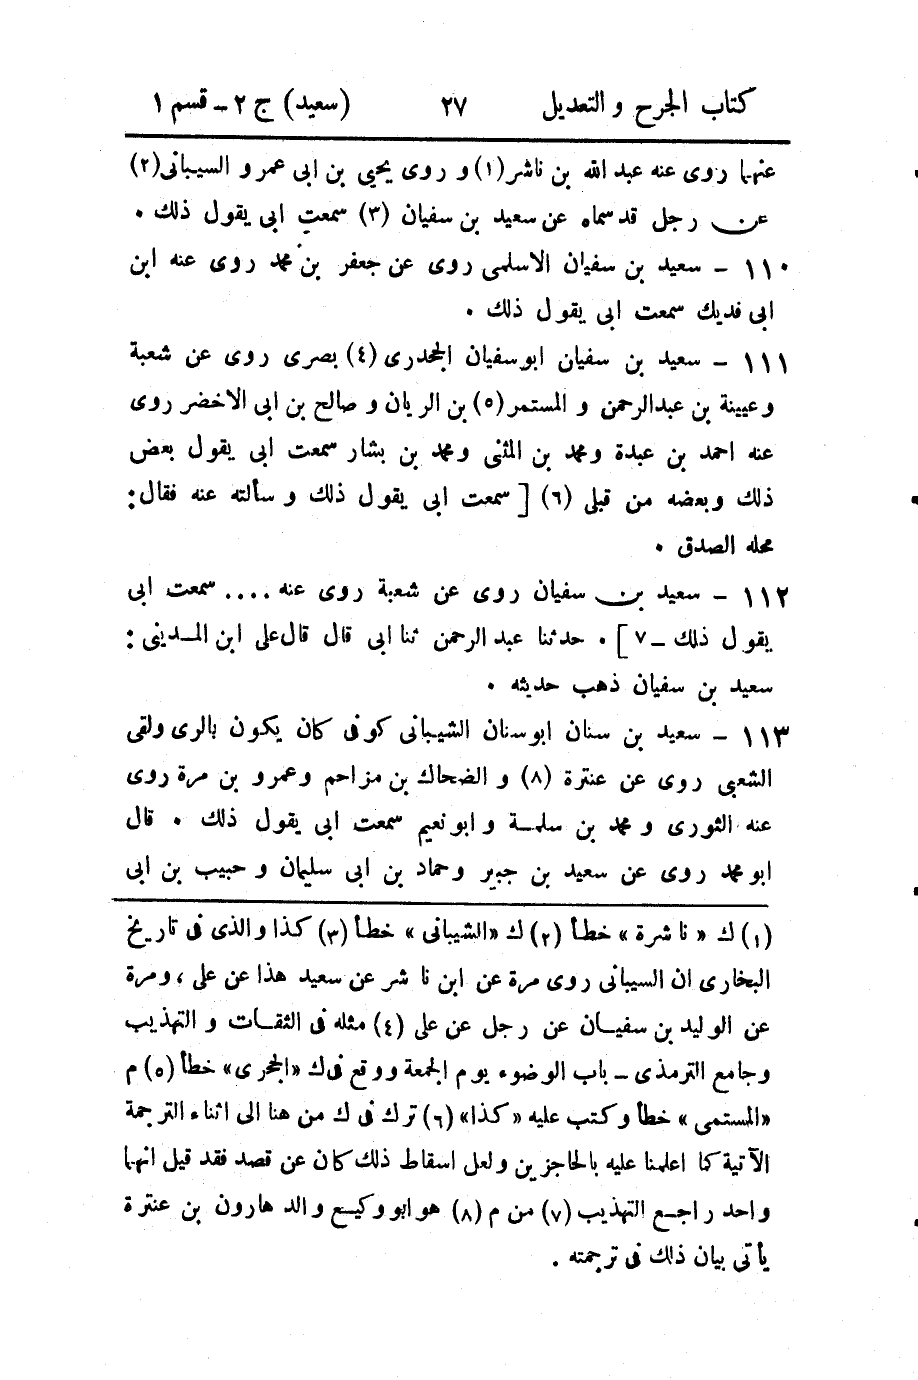 كتاب الجرح و التعديل ٢٧ (سعيد) ج ٢ - قسم ١
عنهما روى عنه عبد الله بن ناشر (١) و روى يحيى بن ابى عمرو السيبانى (٢)
عن رجل قد سماه عن سعيد بن سفيان (٣) سمعت ابى يقول ذلك .
١١٠ - سعيد بن سفيان الاسلمى روى عن جعفر بن محمد روى عنه ابن
ابى فديك سمعت ابى يقول ذلك .
١١١ - سعيد بن سفيان ابو سفيان الجحدرى (٤) بصرى روى عن شعبة
وعيينة بن عبدالرحمن و المستمر (٥) بن الريان و صالح بن ابى الاخضر روى
عنه احمد بن عبدة ومحمد بن المثنى ومحمد بن بشار سمعت ابى يقول بعض
ذلك وبعضه من قبلى (٦) [ سمعت ابى يقول ذلك و سألته عنه فقال:
محله الصدق .
١١٢ - سعيد بن سفيان روى عن شعبة روى عنه .... سمعت ابى
يقول ذلك - ٧ ] . حدثنا عبد الرحمن ثنا ابى قال قال على ابن المدينى :
سعيد بن سفيان ذهب حديثه .
١١٣ - سعيد بن سنان ابو سنان الشيبانى كوفى كان يكون بالرى ولقى
الشعبى روى عن عنترة (٨) و الضحاك بن مزاحم وعمرو بن مرة روى
عنه الثورى و محمد بن سلمة و ابو نعيم سمعت ابى يقول ذلك . قال
ابو محمد روى عن سعيد بن جبير وحماد بن ابى سليمان و حبيب بن ابى
(١) ك « ناشرة » خطأ (٢) ك «الشيبانى » خطأ (٣) كذا والذى فى تاريخ
البخارى ان السيبانى روى مرة عن ابن ناشر عن سعيد هذا عن على ، ومرة
عن الوليد بن سفيان عن رجل عن على (٤) مثله فى الثقات و التهذيب
وجامع الترمذى - باب الوضوء يوم الجمعة ووقع فى ك «الجحرى» خطأ (٥) م
«المستمى » خطأ وكتب عليه «كذا» (٦) ترك فى ك من هنا الى اثناء الترجمة
الآتية كما اعلمنا عليه بالحاجزين ولعل اسقاط ذلك كان عن قصد فقد قيل انهما
واحد راجع التهذيب (٧) من م (٨) هو ابو وكيع والد هارون بن عنترة
يأتى بيان ذلك فى ترجمته .